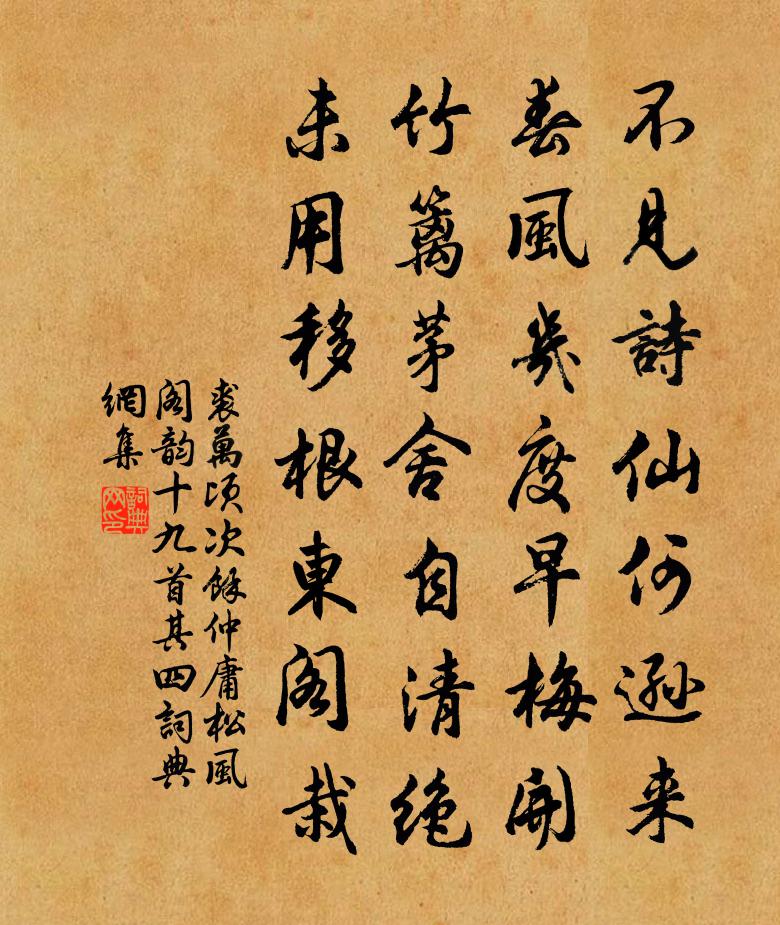 不見詩仙何遜来
春風幾度早梅開
竹籬茅舍自清絶
未用移根東阁栽
裘萬頃次餘仲庸松風
阁韵十九首其四詞典
網集
詞典
网印